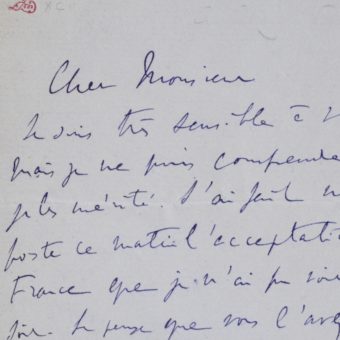 Cher Monsieur
Je suis très sensible à v
mais je ne puis comprendre
je les mérité. J'ai fait
poste ce matin l'acceptation
France que je n'ai pu voir
soir. Je pense que vous l'ave